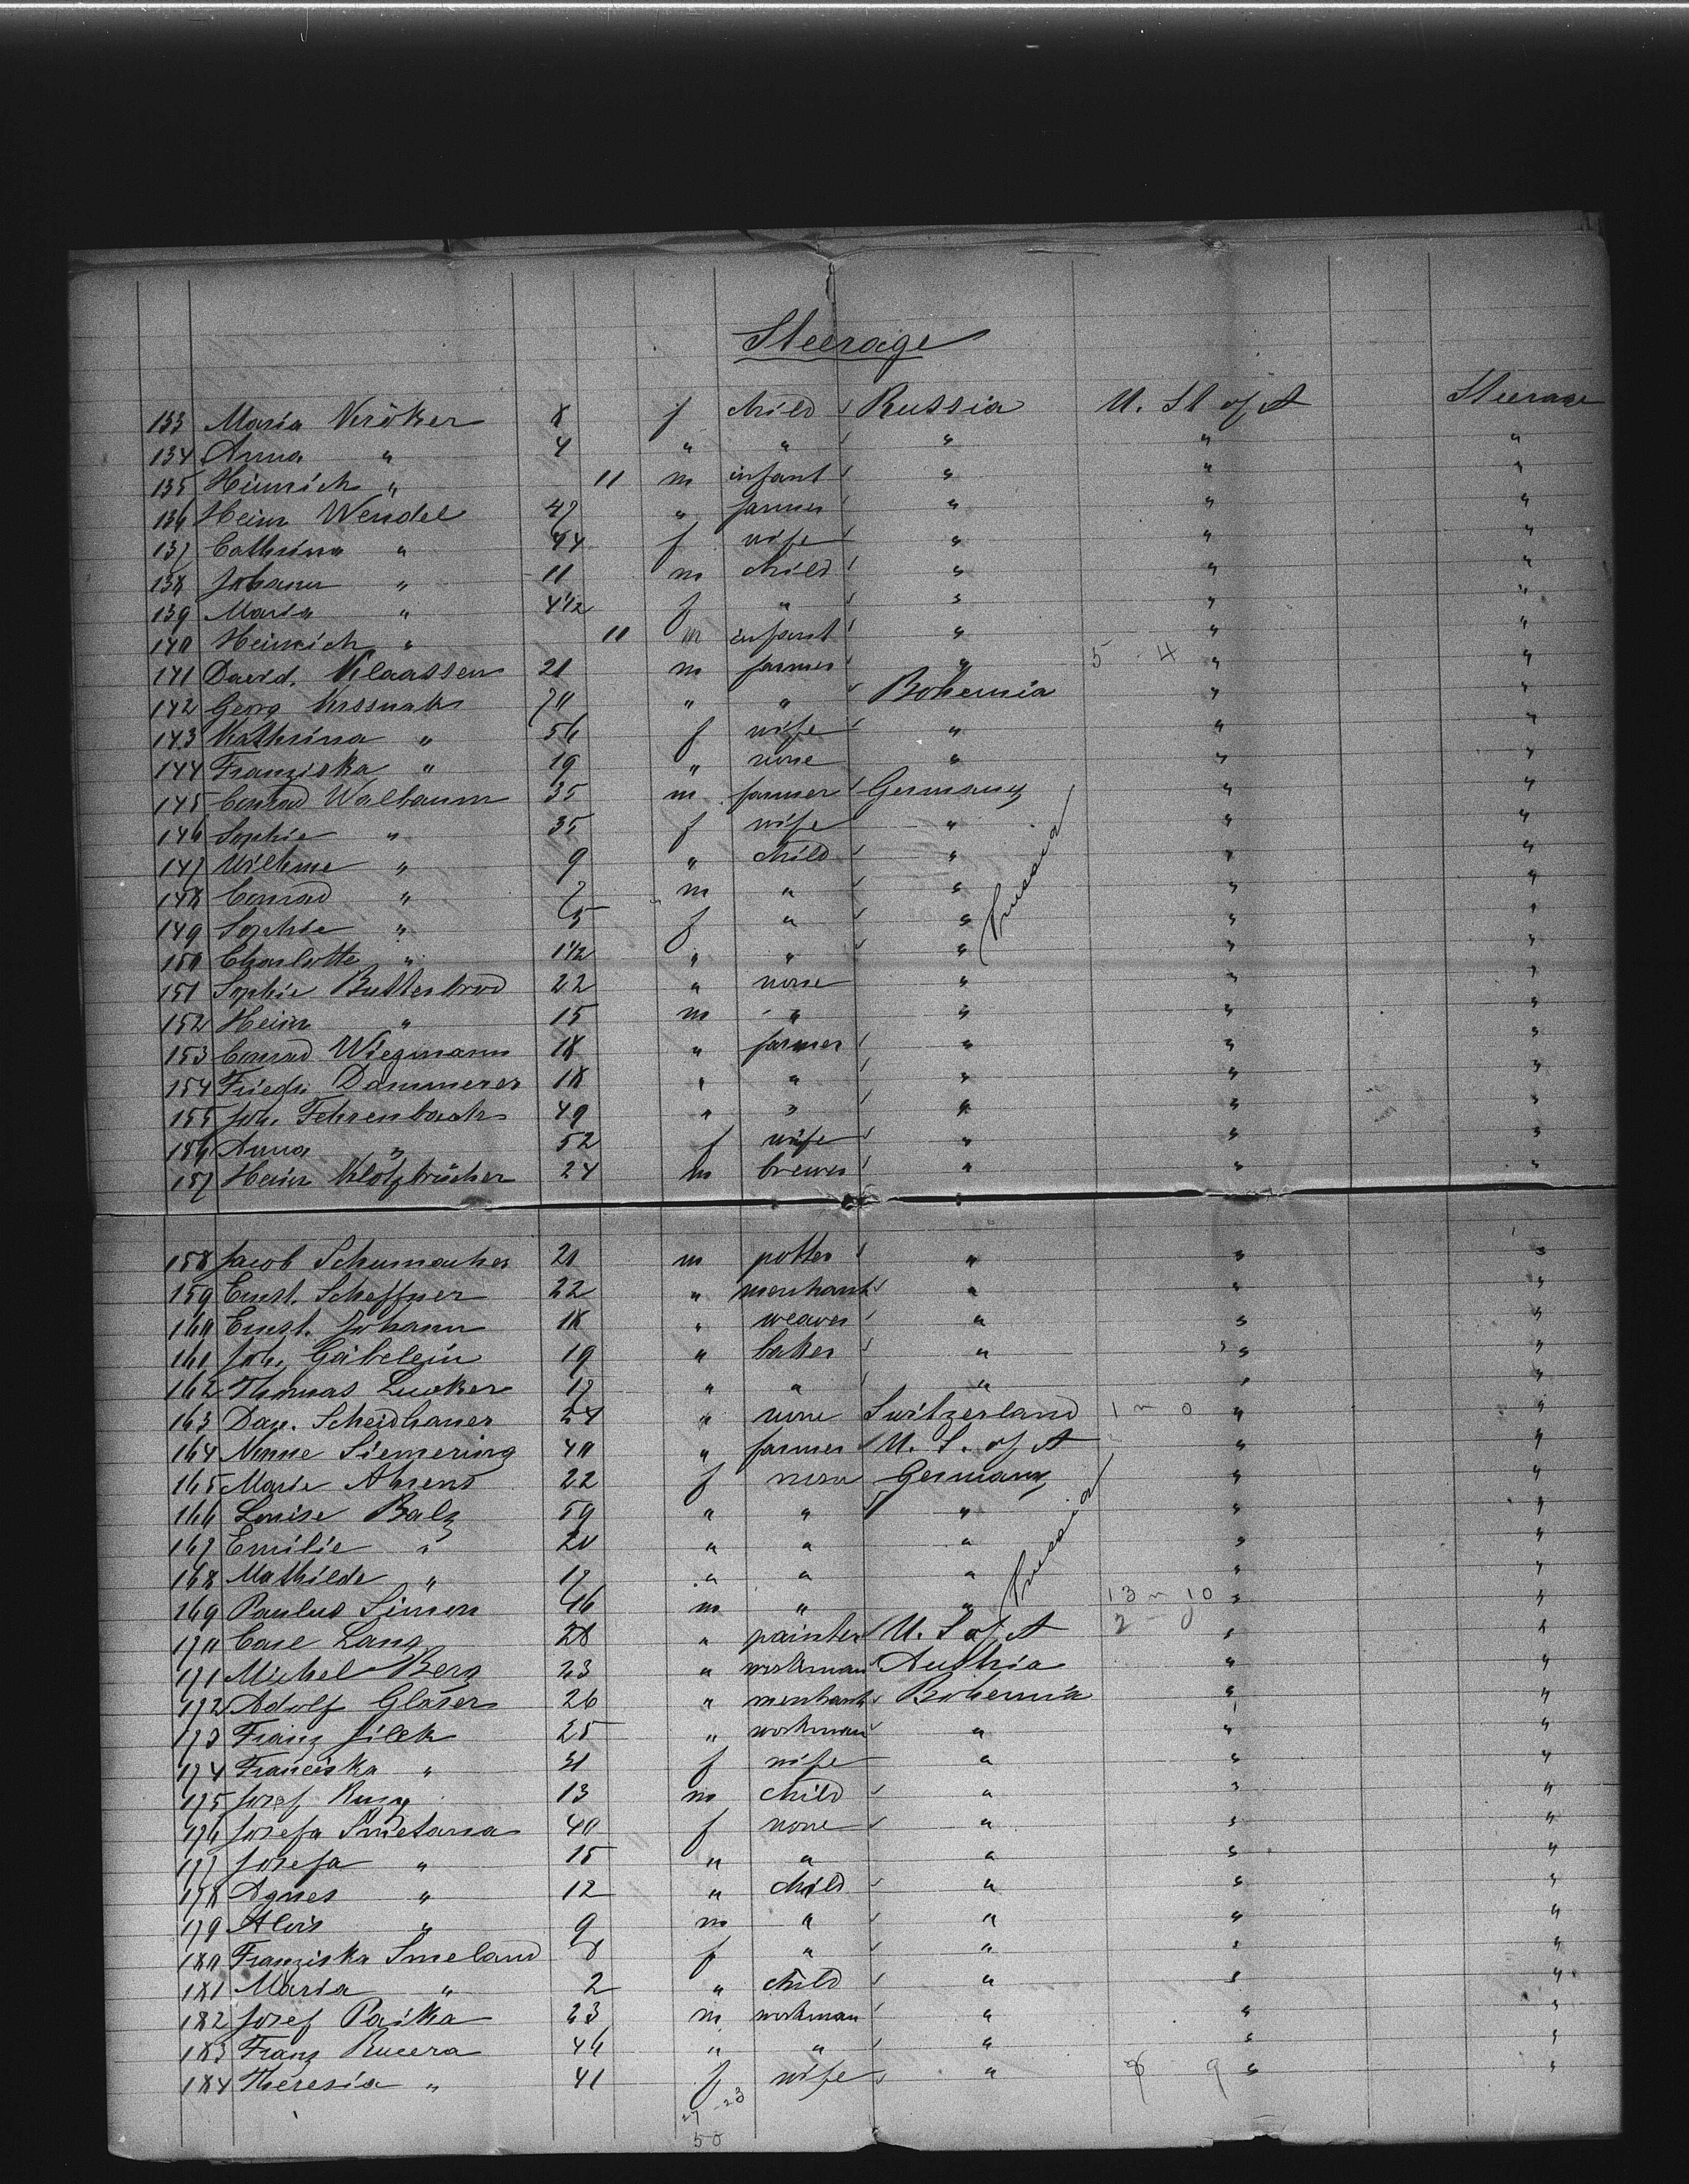 Steerage
133 Maria Kröker 8 f child Russia U. St of A Steerage
134 Anna " 4 " " " " "
135 Heinrich " 11 m infant " " "
136 Heinr Wendel 47 " farmer " " "
137 Cathrina " 44 f wife " " "
138 Johann " 11 m child " " "
139 Maria " 4 1/2 f " " " "
140 Heinrich " 11 m infant " " "
141 David. Klaassen 21 m farmer " 5 - 4 " "
142 Georg 70 " " Bohemia " "
143 Kathrina " 56 f wife " " "
144 Franziska " 19 " none " " "
145 Conrad Walbaum 35 m farmer Germany " "
146 Sophie " 35 f wife " " "
147 Wilhme " 9 " child " Prussia " "
148 Conrad " 7 m " " " "
149 Sophie " 5 f " " " "
150 Charlotte " 1 1/2 " " " " "
151 Sophie Butterbrod 22 " none " " "
152 Heinr " 15 m " " " "
153 Conrad Wiegmann 18 " farmer " " "
154 Friedr. Dammerer 18 " " " " "
155 Joh. Fehrenbach 49 " " " " "
156 Anna " 52 f wife " " "
157 Heinr Klotzbücher 24 m brewer " " "
158 Jacob Schumacher 21 m potter " " "
159 Ernst. Scheffner 22 " merchant " " "
160 Ernst. Johann 18 " weaver " " "
161 Joh. Gäbelein 19 " baker " " "
162 Thomas Lucker 17 " " " " "
163 Dan. Scheidhauer 24 " none Switzerland 1 - 0 " "
164 Siemering 40 " farmer U. S. of A " "
165 Marie Ahrens 22 f none Germany " "
166 Louise Balz 59 " " " " "
167 Emilie " 20 " " " " "
168 Mathilde " 17 " " " Prussia " "
169 Paulus Simon 46 m " " 13 - 10 " "
170 Carl Lang 28 " painter U. S of A 2 - 0 " "
171 Michel Berg 23 " workman Austria " "
172 Adolf Glaser 26 " merchant Bohemia " "
173 Franz Jilek 25 " workman " " "
174 Franciska " 21 f wife " " "
175 Josef 13 m child " " "
176 Josefa Smetana 40 f none " " "
177 Josefa " 15 " " " " "
178 Agnes " 12 " child " " "
179 Alois " 9 m " " " "
180 Franziska Smeland f " " " "
181 Maria " 2 " child " " "
182 Josef Paika 23 m workman " " "
183 Franz Kucera 46 " " " " "
184 Theresia " 41 f wife " 8 9 " "
27 - 23
50